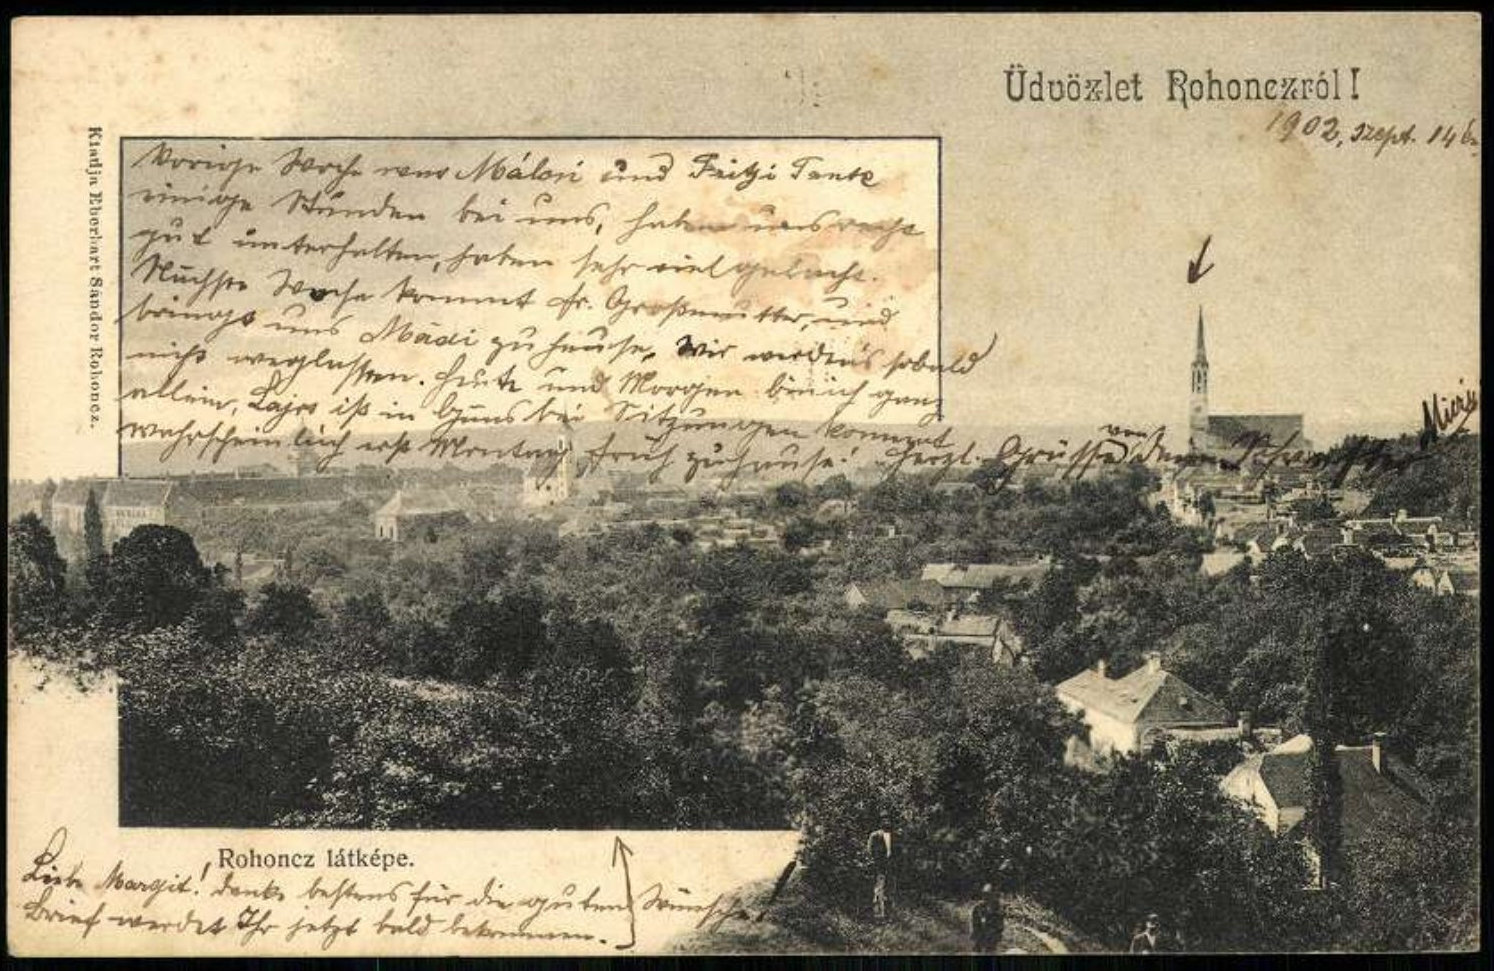 Üdvözlet Rohonczról!
1902, szept. 14 én
Kiadja Eberhart Sándor Rohoncz.
Vorige Woche war Málcsi und Fritzi Tante
einige Stunden bei uns, haben uns recht
gut unterhalten, haben sehr viel gelacht.
Nächste Woche kommt fr. Großmutter, und
bringt uns Mädi zu hause. Wir werden's sobald
nicht weglassen. Heute und Morgen bin ich ganz
allein, Lajos ist in Güns bei Sitzungen kommt
wahrscheinlich erst Montag früh zuhause! Herzl. Grüsse von Deiner Schwester
Miczi
Rohoncz látképe.
Liebe Margit! danke bestens für die guten Wünsche!
Brief werdet Ihr jetzt bald bekommen.